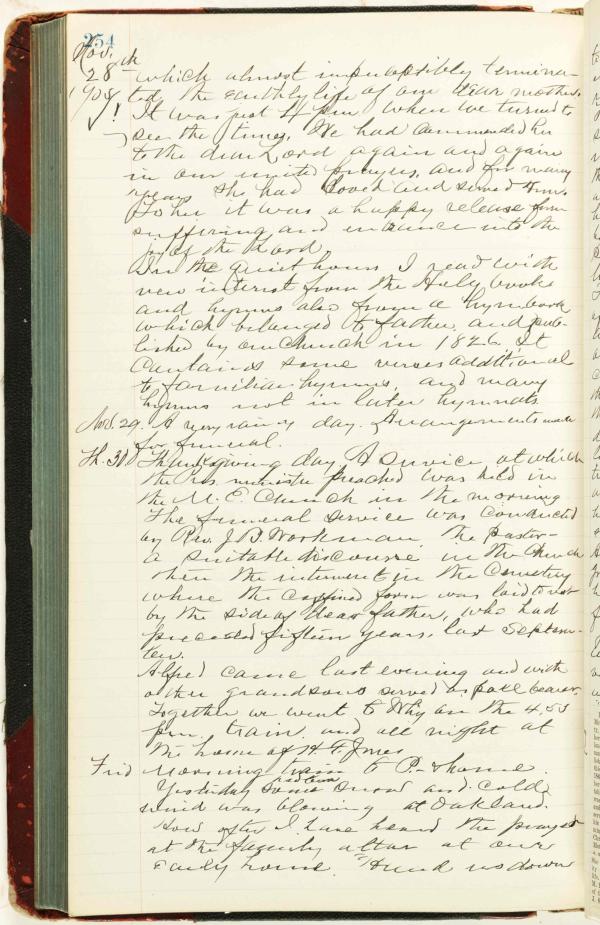 254
Nov.
28th which almost imperceptibly termina-
1905 ted the earthly life of our dear mother.
It was just 4 pm when we turned to
see the time. We had commended her
to the dear Lord again and again
in our united prayers, and for many
years she had loved and served Him.
To her it was a happy release from
suffering and entrance into the
joy of the Lord
In the quiet hours I read with
new interest from the Holy books
and hymns also from a hymnbook
which belonged to father, and pub-
lished by our Church in 182 It
Contains some verses additional
to familiar hymns, and many
hymns not in later hymnals
Wed. 29. A very rainy day. Arrangements made
for funeral.
Th. 30 Thanksgiving day A service at which
the Pres minister preached was held in
the M. E. Church in the morning
The funeral service was conducted
by Rev. J. D. Workman the pastor-
a suitable discourse in the Church
then the interment in the Cemetery
where the coffined form was laid to rest
by the side of dear father, who had
preceded fifteen years, last Septem-
ber.
Alfred came last evening and with
other grandsons served as pall bearer.
Together we went to on the 4.53
pm. train. and all night at
the home of H. F. Jones
Frid Morning train to P. & home.
Yesterday some snow and cold
wind was blowing at Oakland.
How often I have heard the prayer
at the family altar at our
Early home. "Hand us down